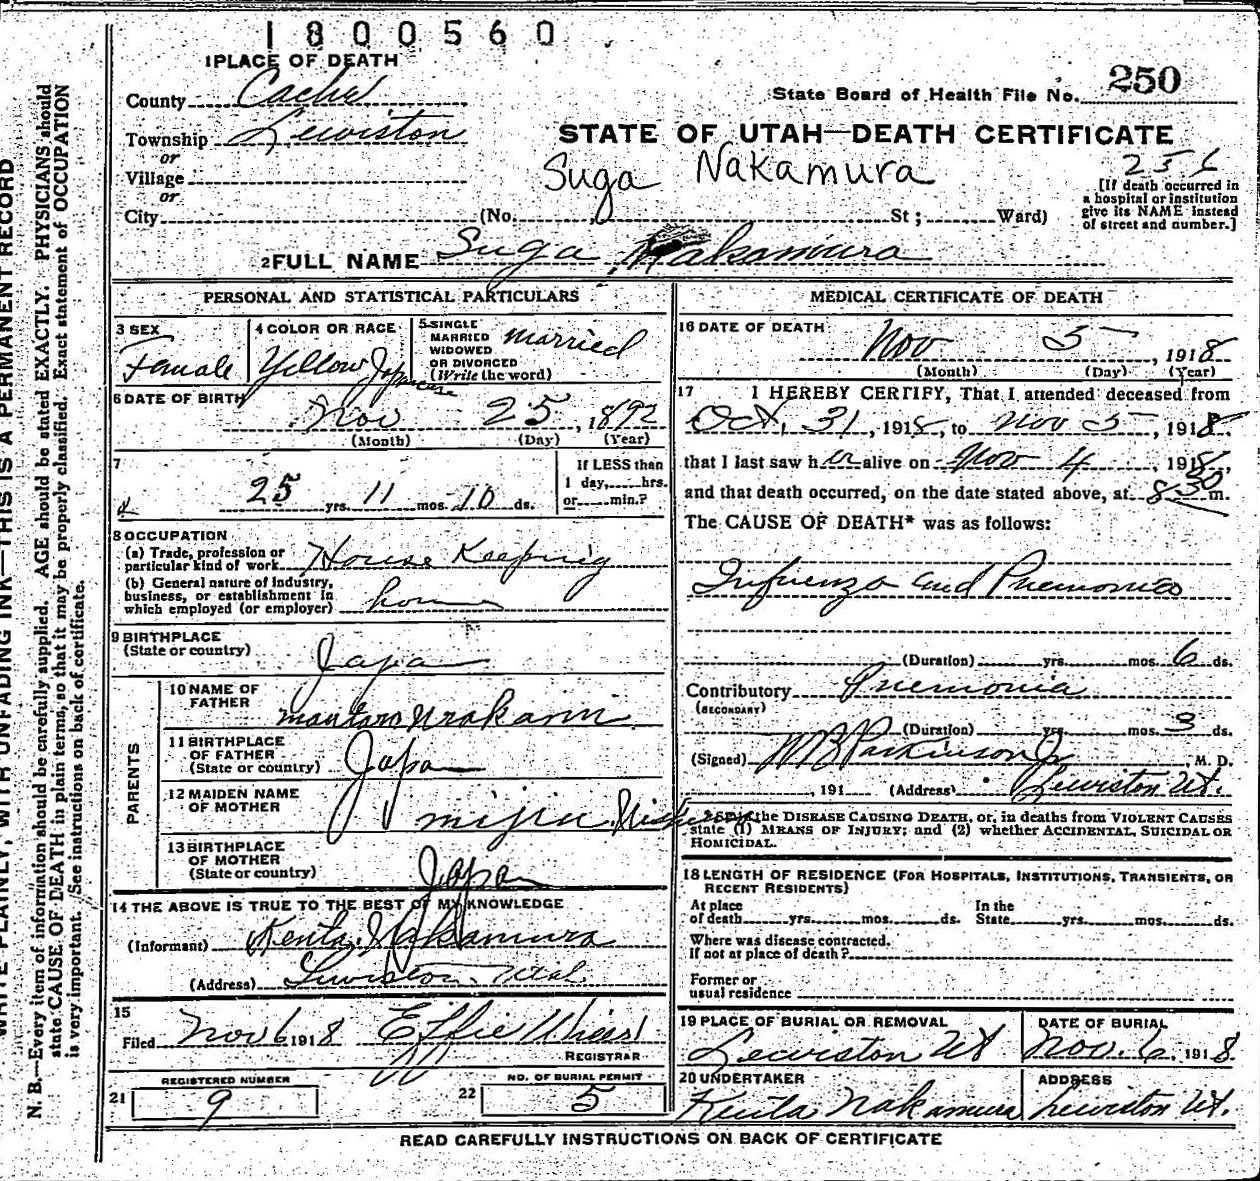 1800560
1 PLACE OF DEATH
County Cache
State Board of Health File No. 250
Township Lewiston
STATE OF UTAH—DEATH CERTIFICATE
or
Village
Suga Nakamura
256
or
City (No. St; Ward)
[If death occurred in
a hospital or institution
give its NAME instead
of street and number.]
2 FULL NAME Suga Nakamura
PERSONAL AND STATISTICAL PARTICULARS
3 SEX
Female
4 COLOR OR RACE
Yellow Japanese
5 SINGLE
MARRIED
WIDOWED
OR DIVORCED
(Write the word)
married
6 DATE OF BIRTH
Nov 25, 1892
(Month) (Day) (Year)
7
25 yrs. 11 mos. 10 ds.
If LESS than
1 day, hrs.
or min.?
8 OCCUPATION
(a) Trade, profession or
particular kind of work House Keeping
(b) General nature of industry,
business, or establishment in
which employed (or employer) home
9 BIRTHPLACE
(State or country) Japan
PARENTS
10 NAME OF
FATHER
11 BIRTHPLACE
OF FATHER
(State or country) Japan
12 MAIDEN NAME
OF MOTHER
13 BIRTHPLACE
OF MOTHER
(State or country) Japan
14 THE ABOVE IS TRUE TO THE BEST OF MY KNOWLEDGE
(Informant) Kenta Nakamura
(Address) Lewiston Utah
15
Filed Nov 6 1918 Effie
REGISTRAR
REGISTERED NUMBER
21 9
NO. OF BURIAL PERMIT
22 5
MEDICAL CERTIFICATE OF DEATH
16 DATE OF DEATH
Nov 5, 1918
(Month) (Day) (Year)
17 I HEREBY CERTIFY, That I attended deceased from
Oct. 31, 1918, to Nov 5, 1918,
that I last saw her alive on Nov 4, 1918,
and that death occurred, on the date stated above, at 8 30 m.
The CAUSE OF DEATH* was as follows:
Infuenza and Pnemonia
(Duration) yrs. mos. 6 ds.
Contributory Pnemonia
(SECONDARY)
(Duration) yrs. mos. 3 ds.
(Signed) W B Parkinson Jr., M. D.
, 191 (Address) Lewiston Ut.
the DISEASE CAUSING DEATH, or, in deaths from VIOLENT CAUSES
state (1) MEANS OF INJURY; and (2) whether ACCIDENTAL, SUICIDAL OR
HOMICIDAL.
18 LENGTH OF RESIDENCE (FOR HOSPITALS, INSTITUTIONS, TRANSIENTS, OR
RECENT RESIDENTS)
At place
of death yrs. mos. ds.
In the
State yrs. mos. ds.
Where was disease contracted.
If not at place of death?
Former or
usual residence
19 PLACE OF BURIAL OR REMOVAL
Lewiston Ut
DATE OF BURIAL
Nov. 6, 1918
20 UNDERTAKER
Kenta Nakamura
ADDRESS
Lewiston Ut.
READ CAREFULLY INSTRUCTIONS ON BACK OF CERTIFICATE
WRITE PLAINLY, WITH UNFADING INK—THIS IS A PERMANENT RECORD
N. B.—Every item of information should be carefully supplied. AGE should be stated EXACTLY. PHYSICIANS should
state CAUSE OF DEATH in plain terms, so that it may be properly classified. Exact statement of OCCUPATION
is very important. See instructions on back of certificate.